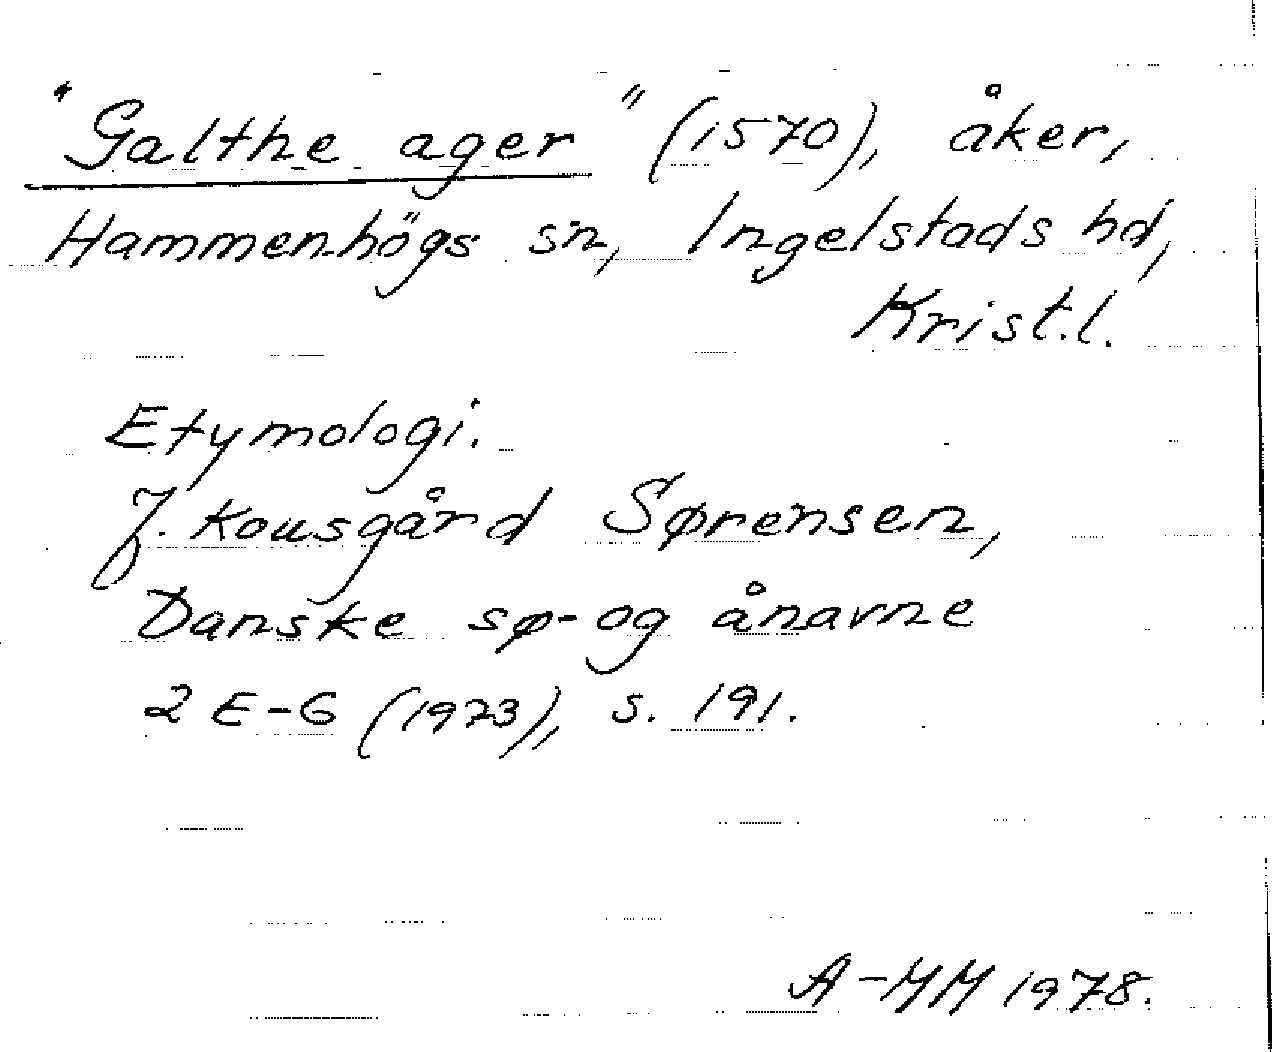 "Galthe ager" (1570), åker,
Hammenhögs sn, Ingelstads hd,
Krist.l.
Etymologi.
J. Kousgård Sørensen,
Danske sø- og ånavne
2 E-G (1973), s. 191.
A-MM 1978.